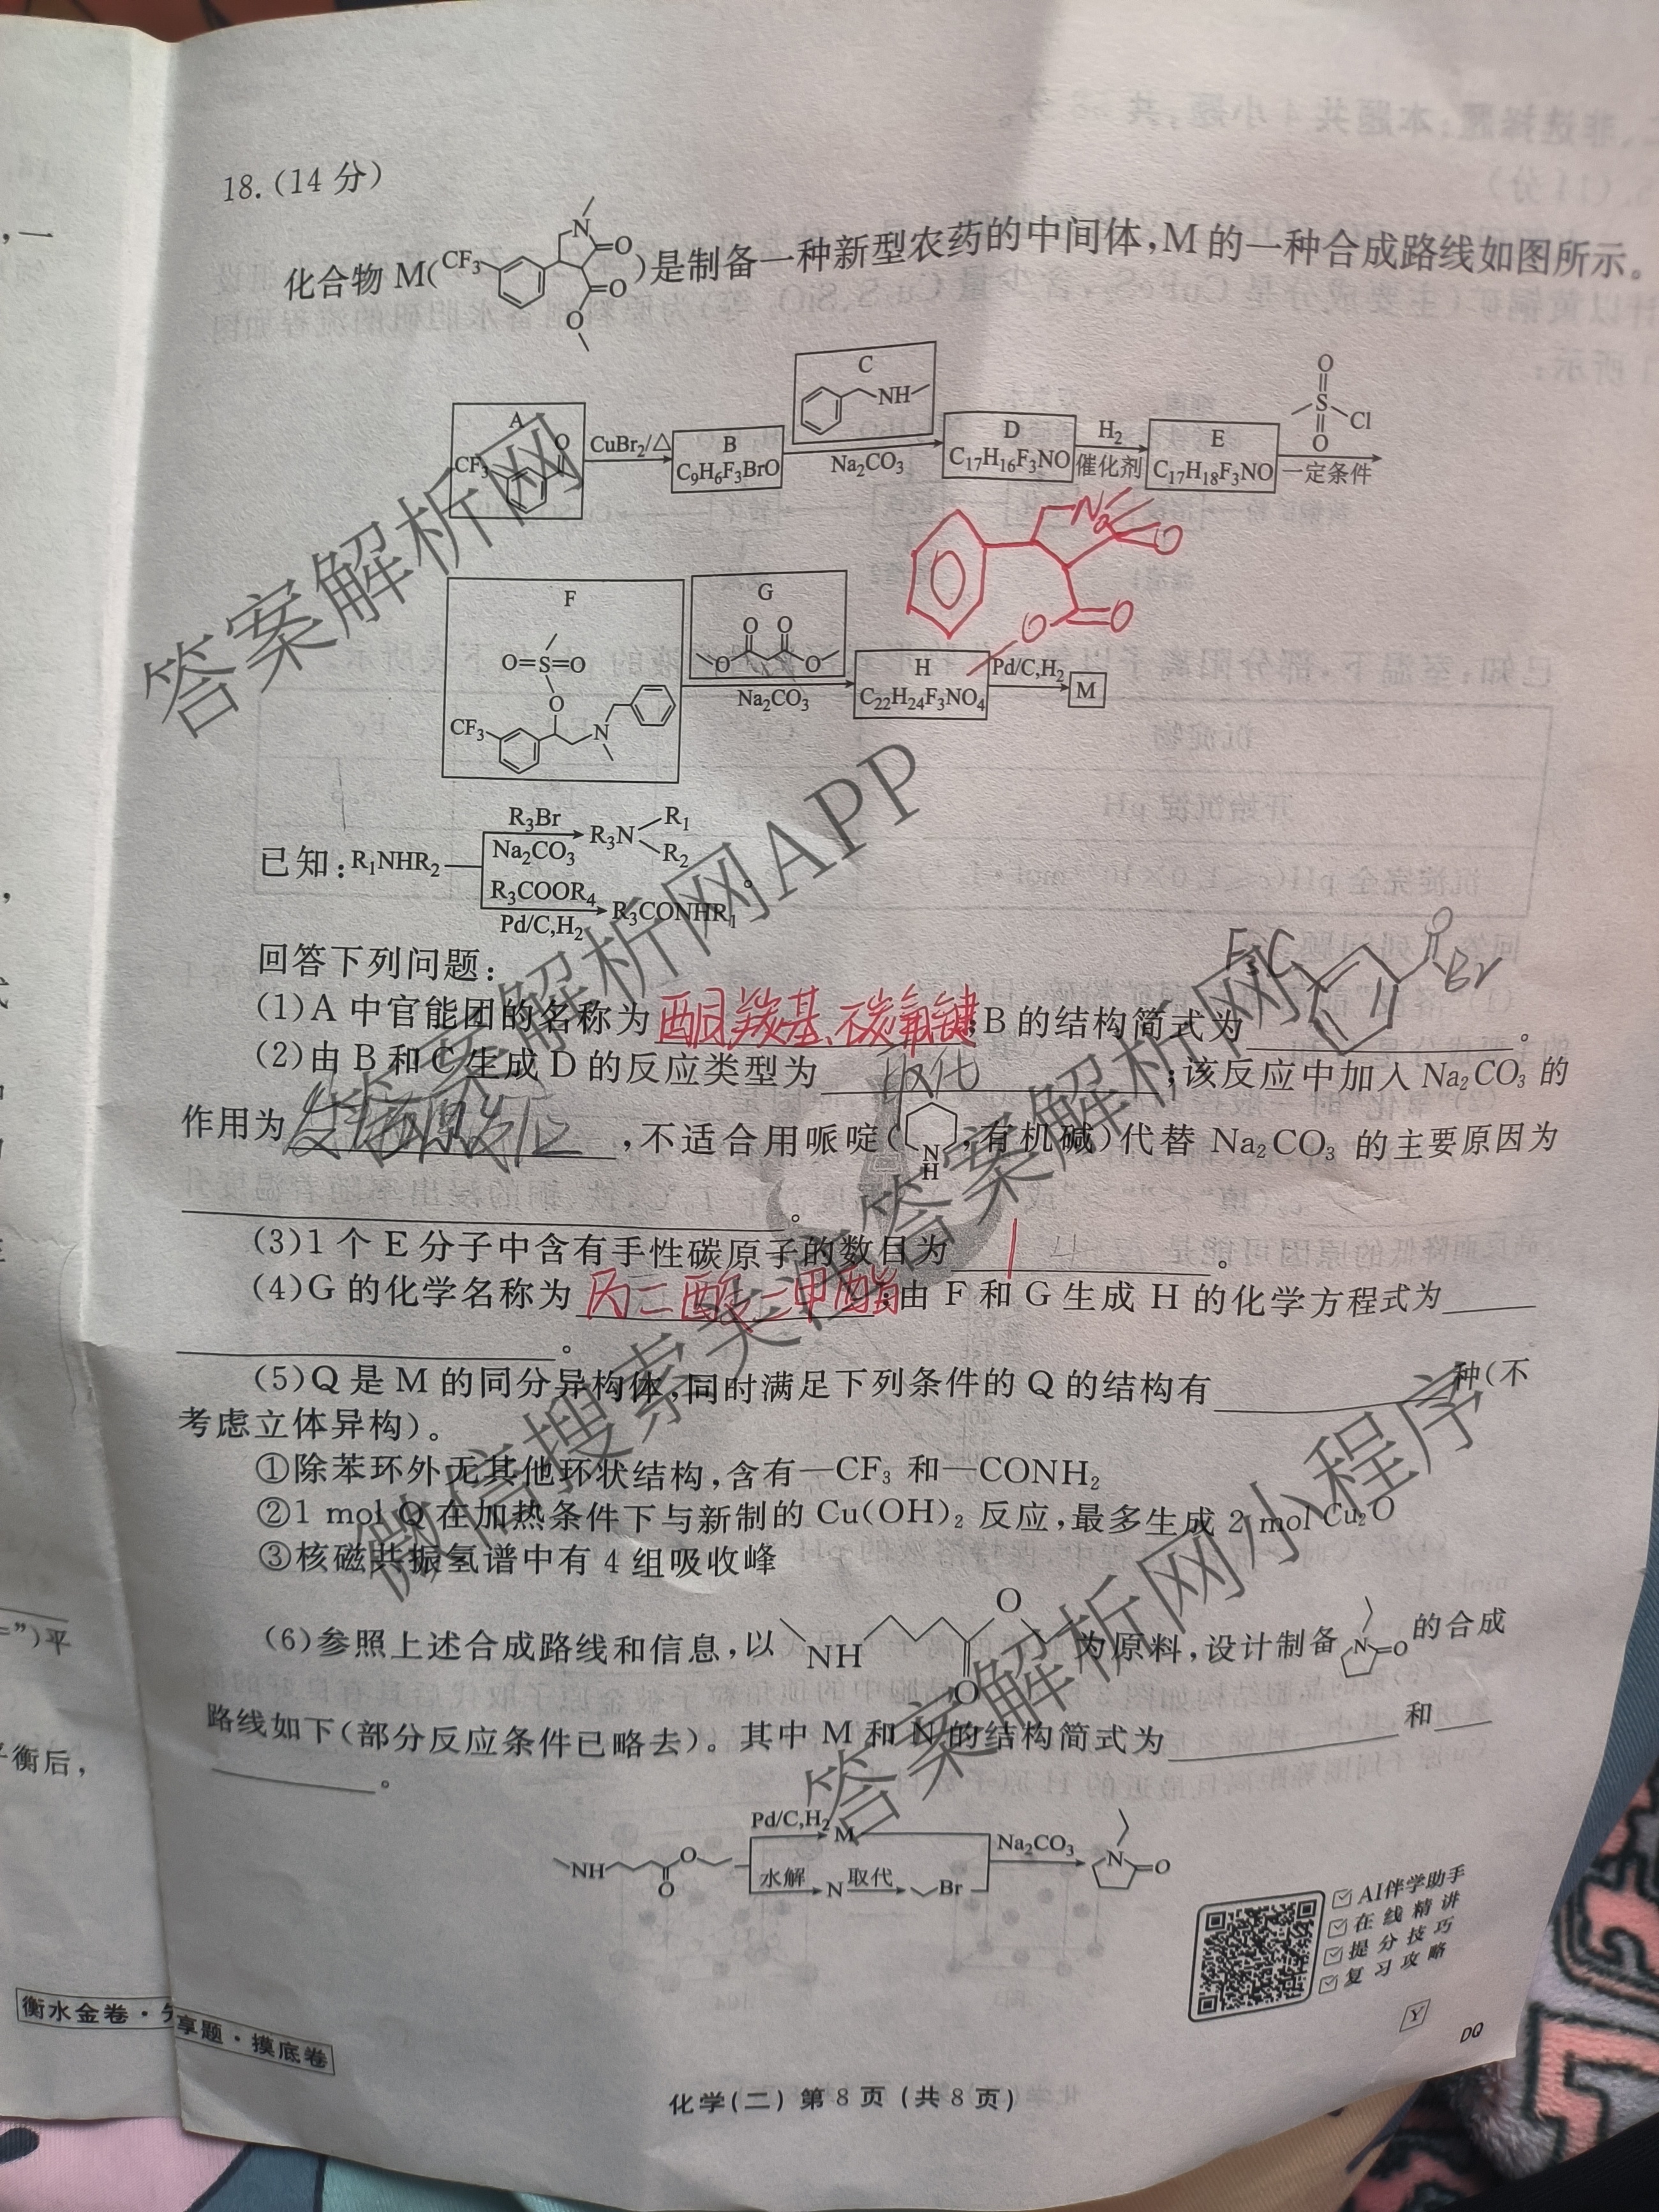 18.(14分)
化合物M( CF₃ N O O O )是制备一种新型农药的中间体,M的一种合成路线如图所示。
A CF₃ O
CuBr₂/△
B C₉H₆F₃BrO
C NH
Na₂CO₃
D C₁₇H₁₆F₃NO
H₂ 催化剂
E C₁₇H₁₈F₃NO
O S Cl O
一定条件
F O=S=O O CF₃ N
G O O O O
Na₂CO₃
H C₂₂H₂₄F₃NO₄
Pd/C,H₂
M
已知:R₁NHR₂
R₃Br
Na₂CO₃
R₃N R₁ R₂
R₃COOR₄
Pd/C,H₂
R₃CONHR₁
。
回答下列问题:
(1)A中官能团的名称为酮羰基、碳氟键;B的结构简式为 F₃C O Br 。
(2)由B和C生成D的反应类型为 取代 ;该反应中加入Na₂CO₃的
作用为 ,不适合用哌啶( N H ,有机碱)代替Na₂CO₃的主要原因为
。
(3)1个E分子中含有手性碳原子的数目为 1 。
(4)G的化学名称为 丙二酸二甲酯 ;由F和G生成H的化学方程式为
。
(5)Q是M的同分异构体,同时满足下列条件的Q的结构有 种(不
考虑立体异构)。
①除苯环外无其他环状结构,含有—CF₃和—CONH₂
②1 mol Q在加热条件下与新制的Cu(OH)₂反应,最多生成2 mol Cu₂O
③核磁共振氢谱中有4组吸收峰
(6)参照上述合成路线和信息,以 NH O O 为原料,设计制备 N O 的合成
路线如下(部分反应条件已略去)。其中M和N的结构简式为 和
。
NH O O
Pd/C,H₂ M
水解 N 取代 Br
Na₂CO₃
N O
AI伴学助手
在线精讲
提分技巧
复习攻略
Y
DQ
衡水金卷·
享题·摸底卷
化学(二) 第8页(共8页)
答案解析网
答案解析网APP
微信搜索关注答案解析网
答案解析网小程序